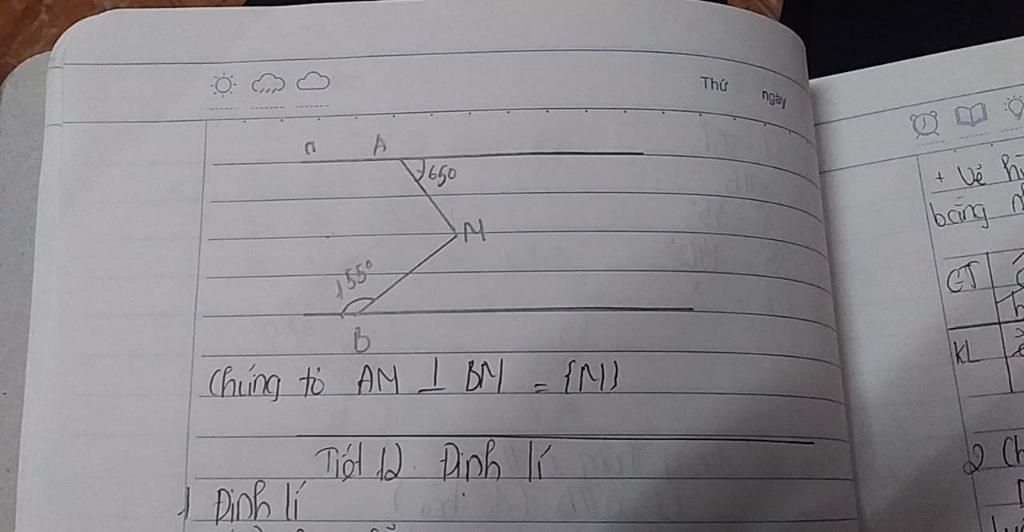 Thứ ngày
a A
650
M
155°
B
Chứng tỏ AM ⊥ BM = {M}
Tiết 12. Định lí
1 Định lí
+ Vẽ
bằng
GT
KL
2 Ch